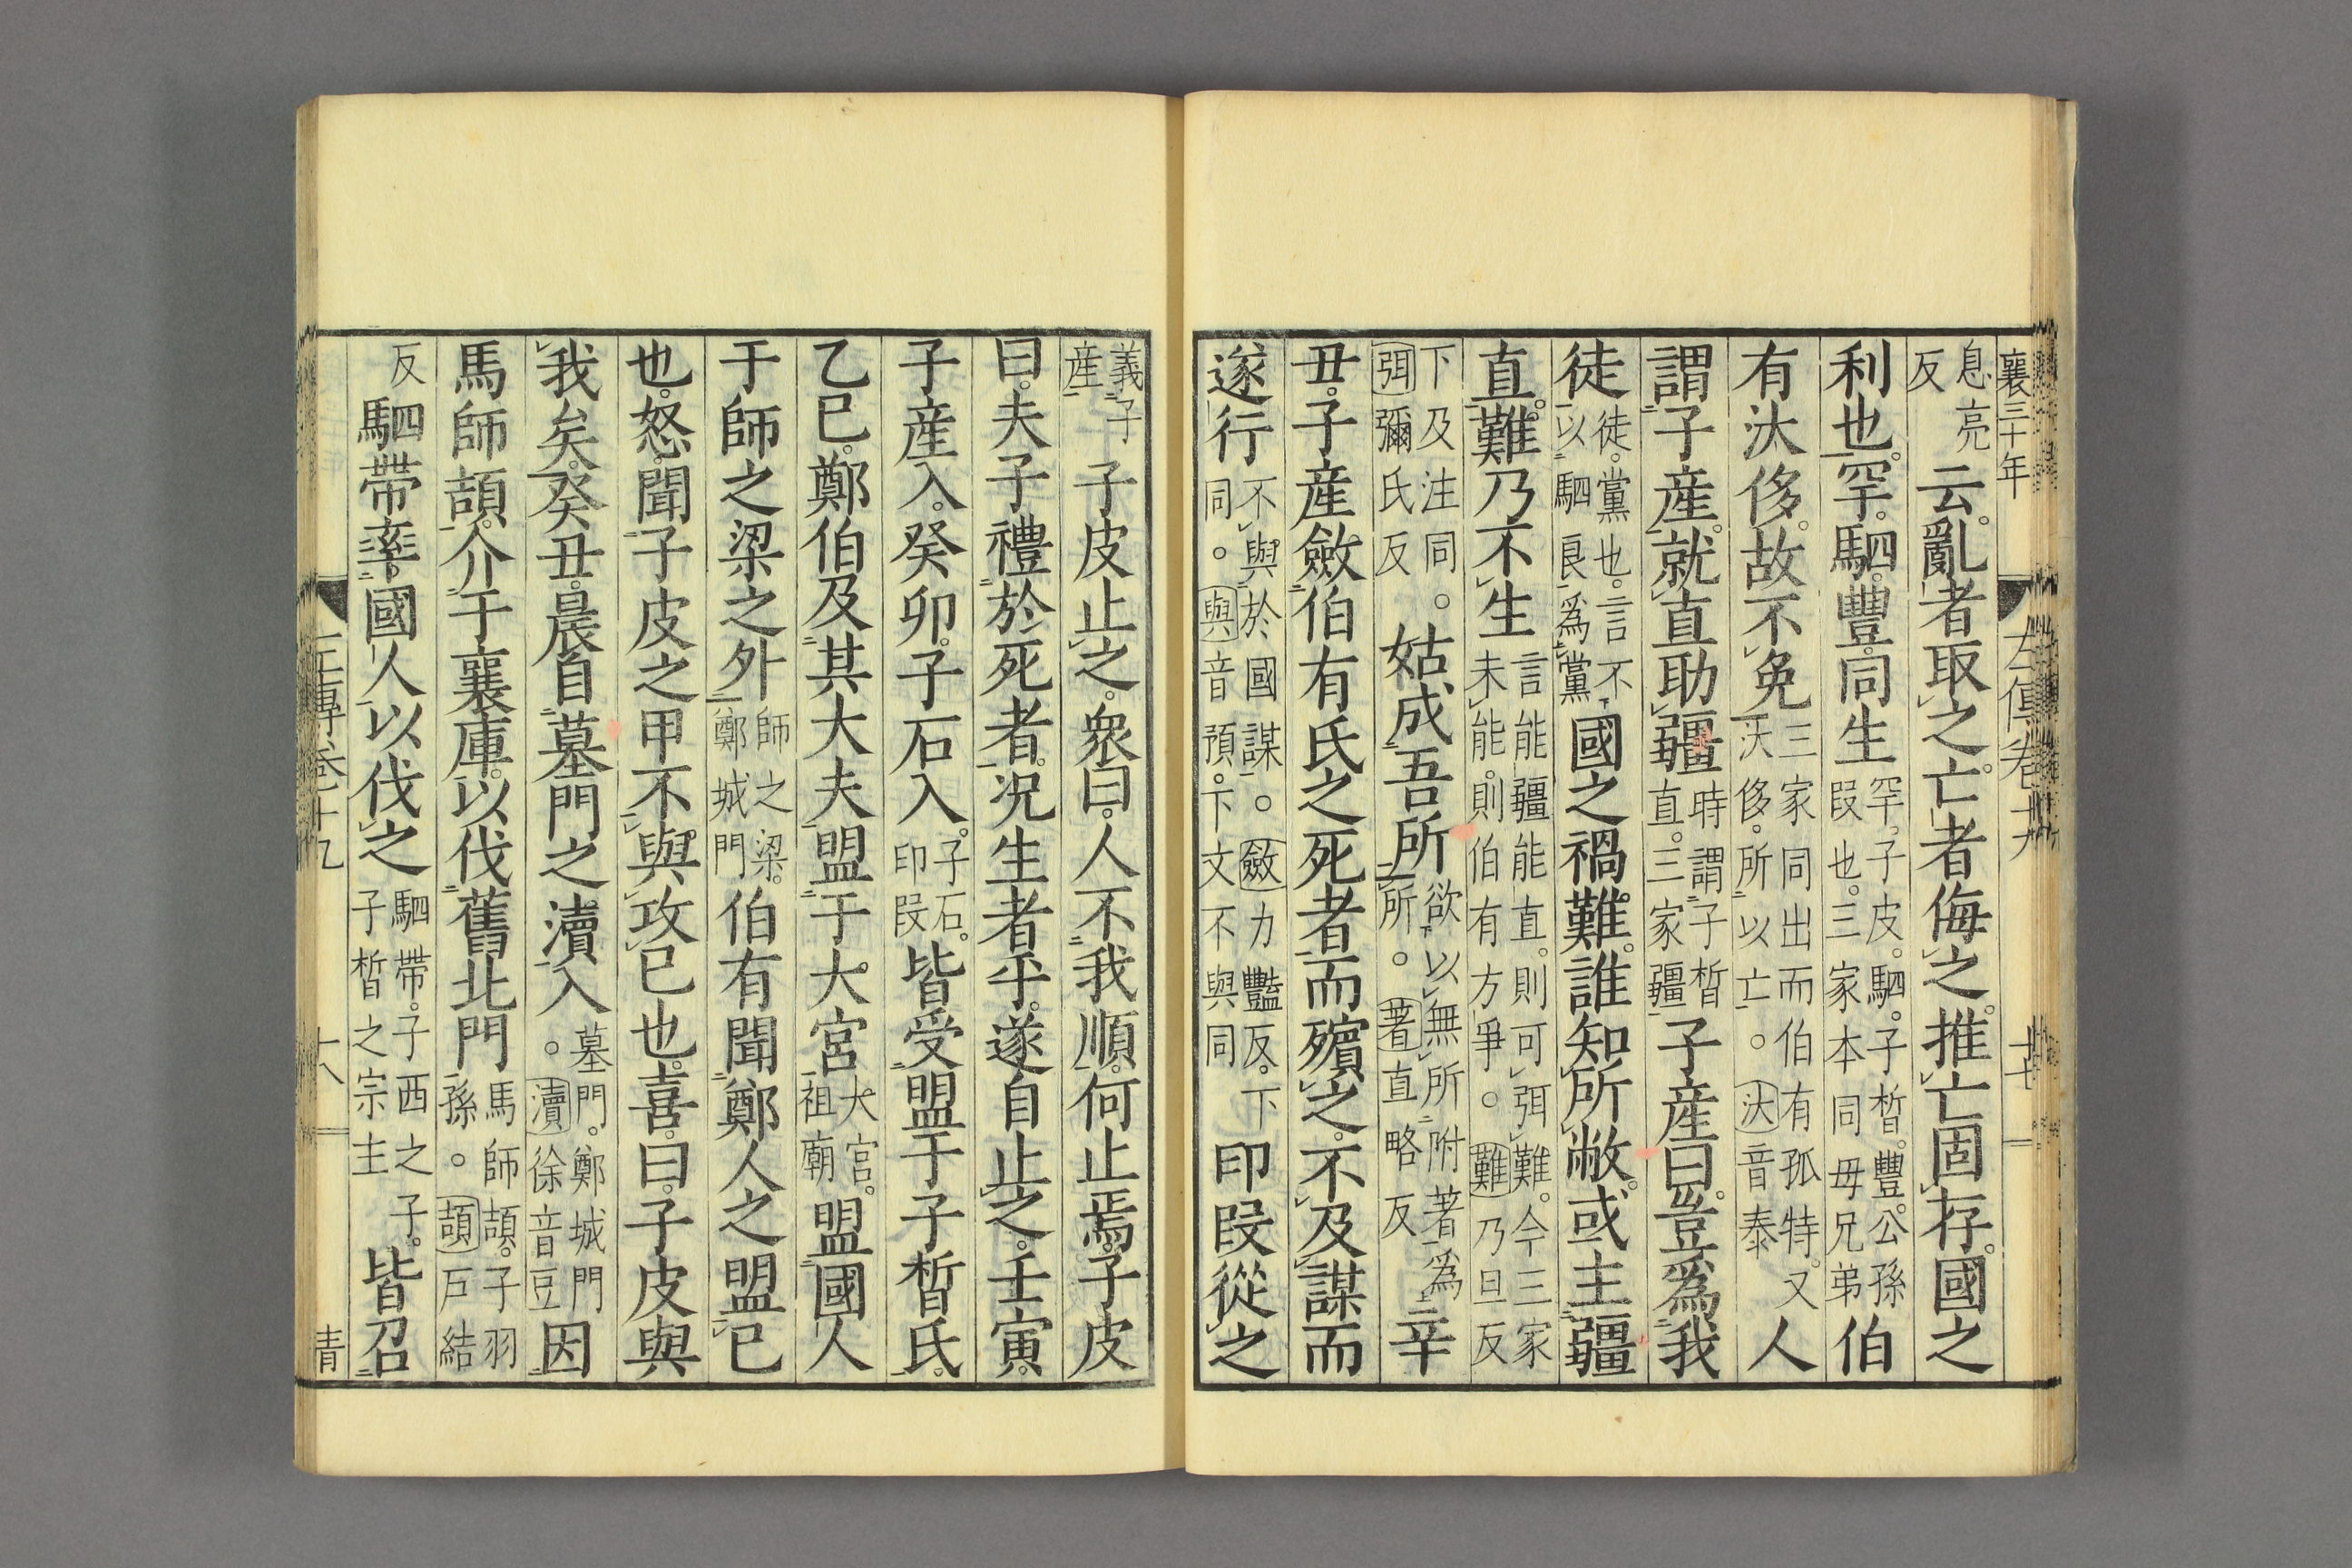 襄三十年
左傳卷十九
十七
息亮反云。亂者取之。亡者侮之。推亡固存。國之
利也。罕。駟。豐。同生罕。子皮。駟。子皙。豐。公孫段也。三家本同母兄弟伯
有汏侈。故不免三家同出而伯有孤特。又汏侈。所以亡。○汏音泰人
謂子産。就直助彊時謂子皙直。三家彊子産曰。豈爲我
徒徒。黨也。言不以駟良爲黨國之禍難。誰知所敝。或主彊
直。難乃不生言能彊能直。則可弭難。今三家未能。則伯有方爭。○難乃旦反
下及注同。○弭彌氏反姑成吾所欲以無所附著爲所。○著直略反辛
丑。子産斂伯有氏之死者而殯之。不及謀而
遂行不與於國謀。○斂力豔反。下同。○與音預。下文不與同印段從之
義子産子皮止之。衆曰。人不我順。何止焉。子皮
曰。夫子禮於死者。况生者乎。遂自止之。壬寅。
子産入。癸卯。子石入。子石。印段皆受盟于子皙氏。
乙巳。鄭伯及其大夫盟于大宮大宮。祖廟盟國人
于師之梁之外師之梁。鄭城門伯有聞鄭人之盟已
也。怒。聞子皮之甲不與攻已也。喜。曰。子皮與
我矣。癸丑。晨自墓門之瀆入墓門。鄭城門○瀆徐音豆因
馬師頡。介于襄庫。以伐舊北門馬師頡。子羽孫。○頡戶結
反駟帶率國人以伐之駟帶。子西之子。子皙之宗主皆召
左傳卷十九
十八
青